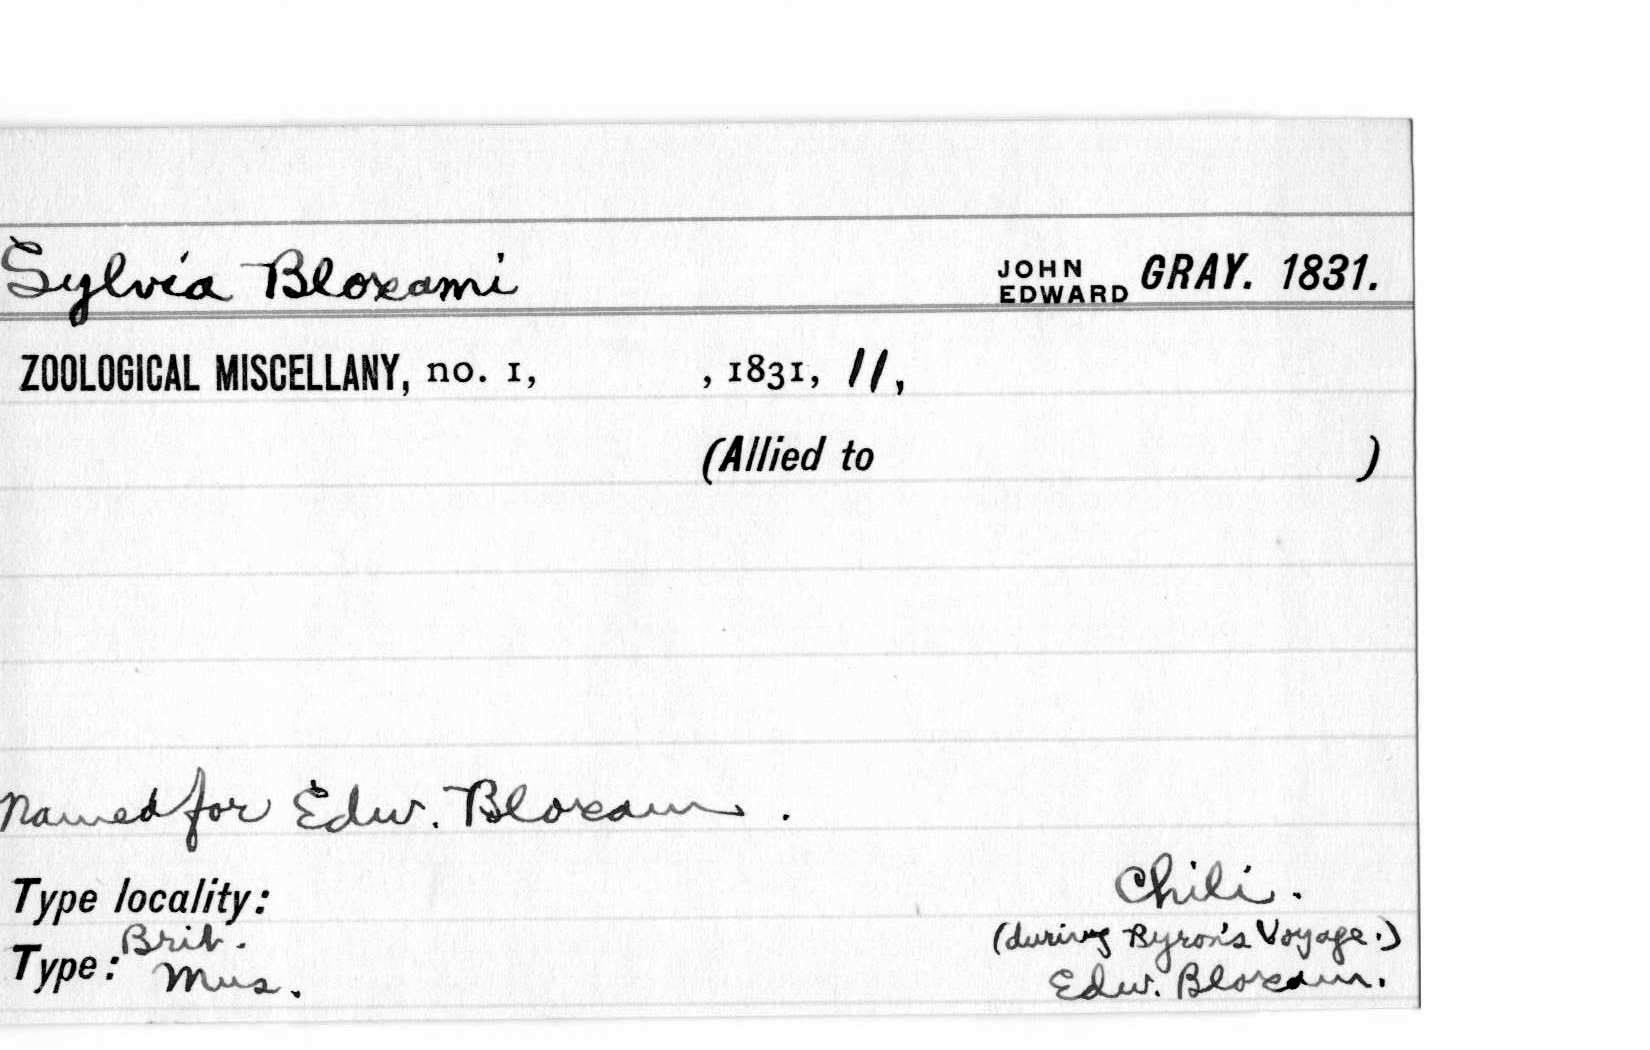 Sylvia Bloxami JOHN EDWARD GRAY. 1831.
ZOOLOGICAL MISCELLANY, no. 1, , 1831, 11,
(Allied to )
Named for Edw. Bloxam.
Type locality: Chili.
(during Byron's Voyage.)
Type: Brit. Mus. Edw. Bloxam.